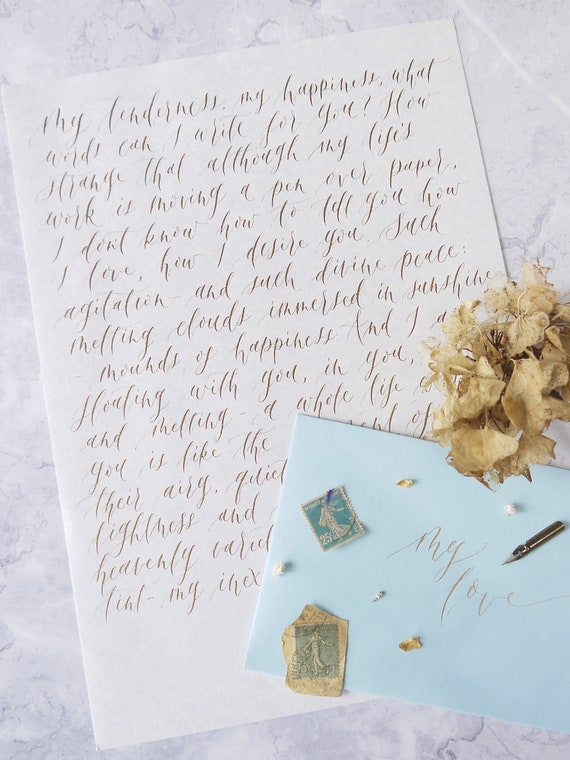 My tenderness, my happiness, what
words can I write for you? How
strange that although my life's
work is moving a pen over paper,
I don't know how to tell you how
I love, how I desire you. Such
agitation - and such divine peace:
melting clouds immersed in sunshine
- mounds of happiness. And I a
floating with you, in you,
and melting - a whole life
you is like the
their airy, quiet
lightness and
heavenly varie
tint - my inex
25c
my
love